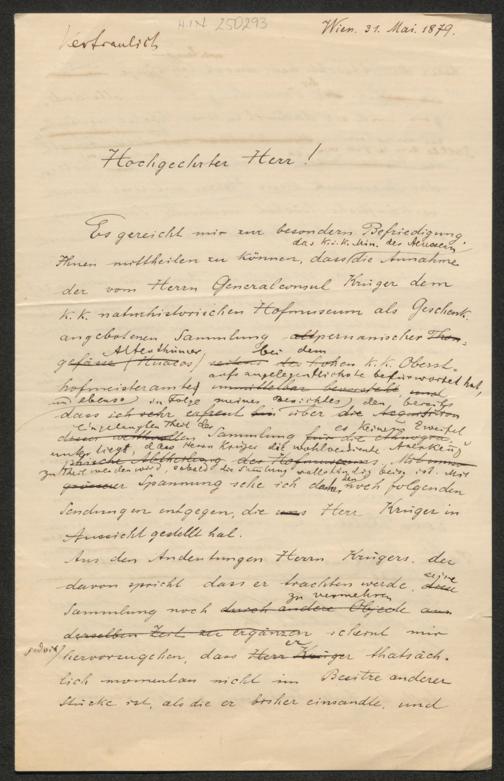 H.I.N. 250293
Vertraulich
Wien. 31. Mai. 1879.
Hochgeehrter Herr!
Es gereicht mir zur besondern Befriedigung,
das k. u. k. Min. des Aeussern
Ihnen mittheilen zu können, dass die Annahme
der vom Herrn Generalconsul Krüger dem
k. k. naturhistorischen Hofmuseum als Geschenk
angebotenen Sammlung altperuanischer Thon-
Alterthümer bei dem
gefässe (Huacos) hohen k. k. Oberst-
auf angelegentlichste befürwortet hat,
hofmeisteramte unmittelbar und
u. ebenso in Folge meines Berichtes, den bereits
dass ich sehr erfreut bin über die Acquisition
eingelangten Theil der es keinem Zweifel
dieser Sammlung für die
unterliegt, dass Herrn Krüger die wohlverdiente Anerkennung
Abtheilung des Hofmuseums. Mit
zu Theil werden wird, sobald die Sammlung vollständig beisammen ist. Mit
grösserer Spannung sehe ich den noch folgenden
Sendungen entgegen, die uns Herr Krüger in
Aussicht gestellt hat.
Aus den Andeutungen Herrn Krügers, der
davon spricht dass er trachten werde, seine
zu vermehren
Sammlung noch durch andere Objecte aus
derselben Zeit zu ergänzen scheint mir
jedoch er
hervorzugehen, dass Herr Krüger thatsäch-
lich momentan nicht im Besitze anderer
Stücke ist, als die er bisher einsandte, und